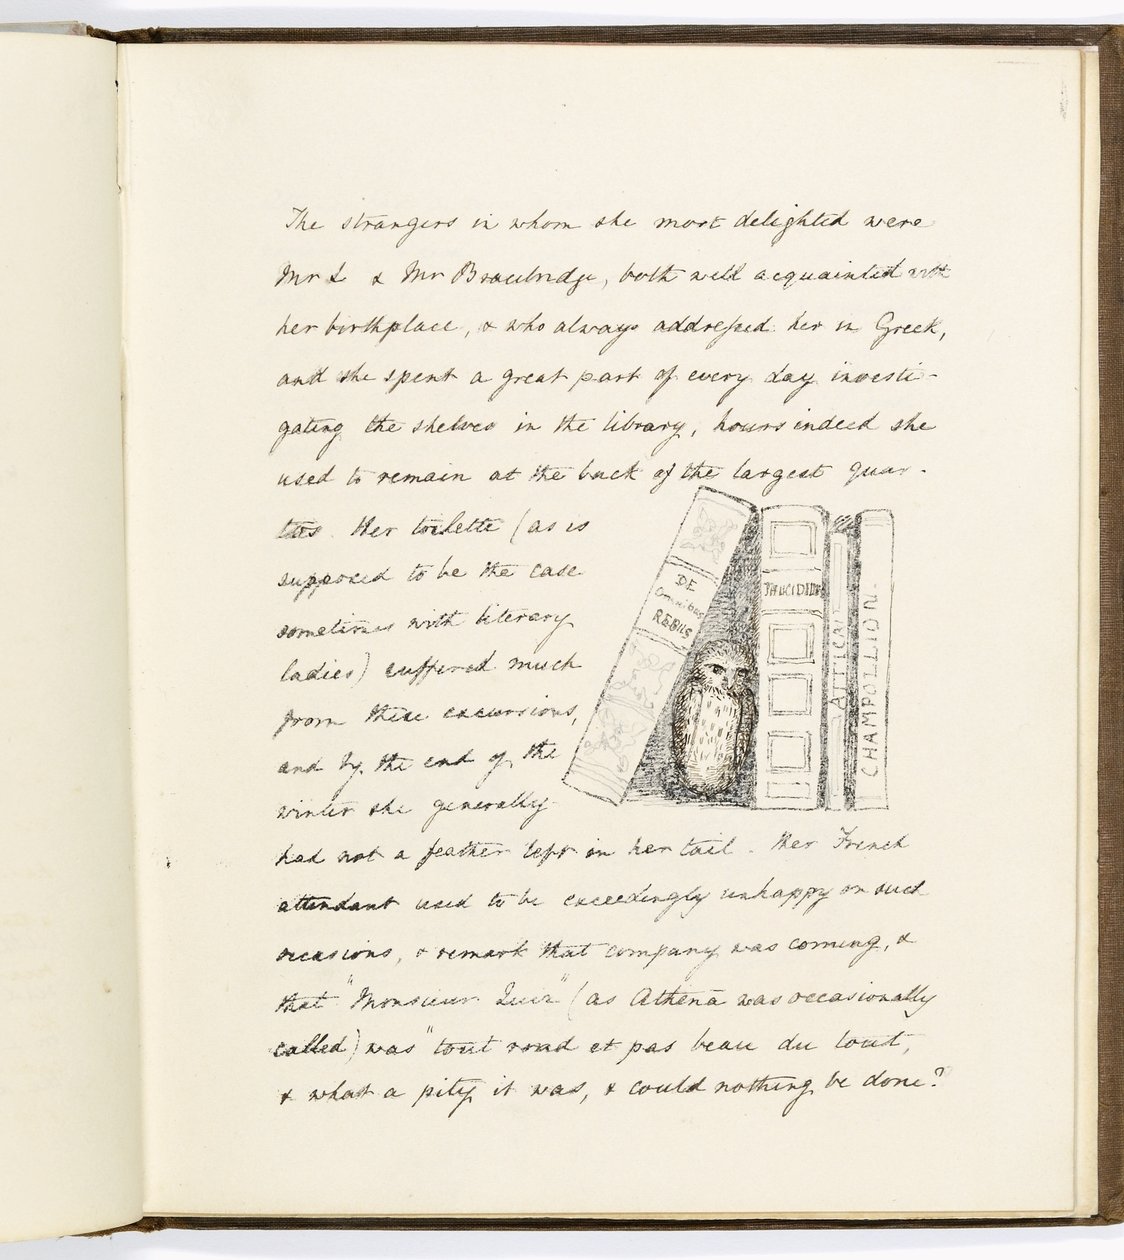 The strangers in whom she most delighted were
Mr L & Mr Bracebridge, both well acquainted with
her birthplace, & who always addressed her in Greek,
and she spent a great part of every day investi-
gating the shelves in the library, hours indeed she
used to remain at the back of the largest quar-
tos. Her toilette (as is
supposed to be the case
sometimes with literary
ladies) suffered much
from these excursions,
and by the end of the
winter she generally
had not a feather left in her tail. Her French
attendant used to be exceedingly unhappy on such
occasions, & remark that company was coming, &
that "Monsieur Quiz" (as Athena was occasionally
called) was "tout rond et pas beau du tout,
& what a pity it was, & could nothing be done?
DE
Omnibus
REBUS
THUCIDIDES
CHAMPOLLION.